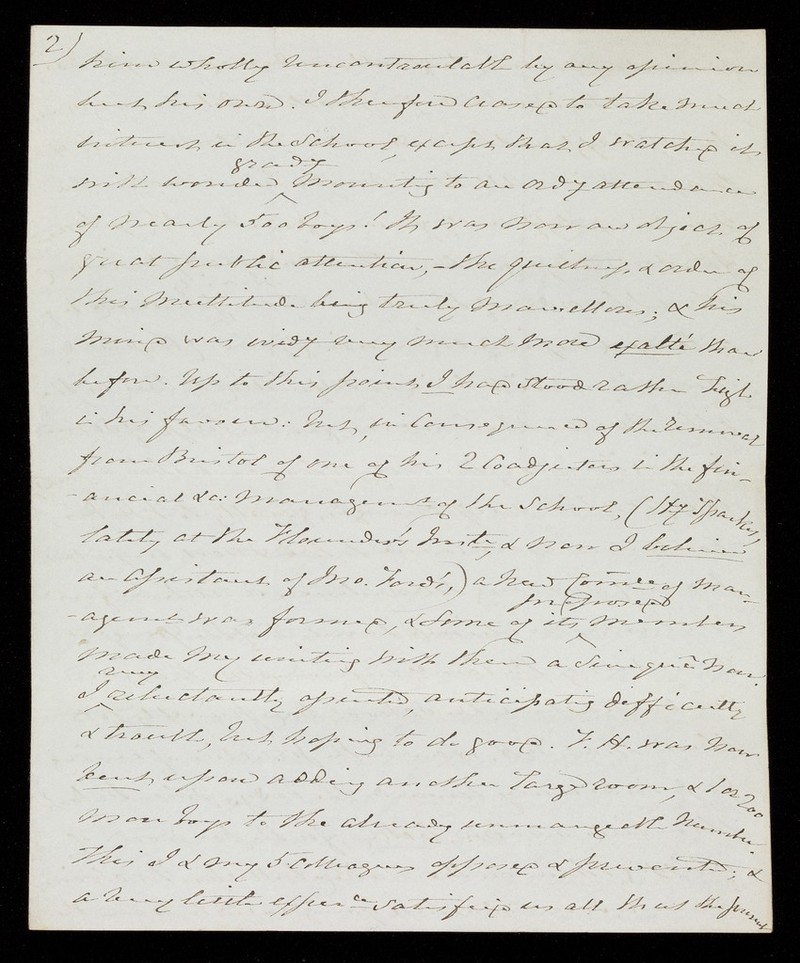 2)
him wholly uncontroulable by any opinion
but his own. I therefore ceased to take much
interest in the School, except that I watched it
with wonder grady mounting to an ordy attendance
of nearly 500 boys! It was now an object of
great public attention, - the quietness & order of
this multitude being truly marvellous; & his
mind was evidy very much more exalté than
before. Up to this point I had stood rather high
in his favour: but, in consequence of the removal
from Bristol of one of his 2 Coadjutors in the fin-
-ancial &c: management of the School, (Hy Sparkes,
lately at the Flounders's Inste, & now I believe
an assistant of Jno. Ford's,) a new Comee of man-
-agement was formed, & some of its proposed members
made my uniting with them a sine quâ non.
I very reluctantly assented, anticipating difficulty
& trouble, but hoping to do good. F. H. was now
bent upon adding another large room, & 1 or 200
more boys to the already unmanageable number.
This I & my 5 Colleagues opposed & prevented; &
a very little experce satisfied us all that the present